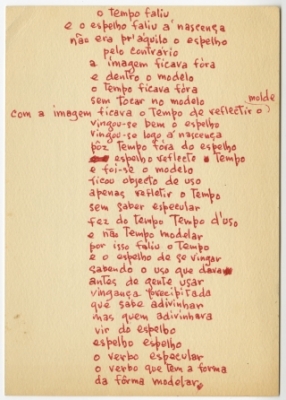 o tempo faliu
e o espelho faliu à nascença
não era pr'àquilo o espelho
pelo contrário
a imagem ficava fóra
e dentro o modelo
o Tempo ficava fóra
sem tocar no modelo
molde
com a imagem ficava o Tempo de reflectir o
vingou-se bem o espelho
vingou-se logo à nascença
pôz tempo fóra do espelho
espelho reflecte o Tempo
e foi-se o modelo
ficou objecto de uso
apenas reflectir o Tempo
sem saber especular
fez do tempo Tempo d'uso
e não Tempo modelar
por isso faliu o Tempo
e o espelho de se vingar
sabendo o uso que dava
antes de gente usar
vingança precipitada
que sabe adivinhar
mas quem adivinhava
vir do espelho
espelho espelho
o verbo especular
o verbo que tem a forma
da fôrma modelar.